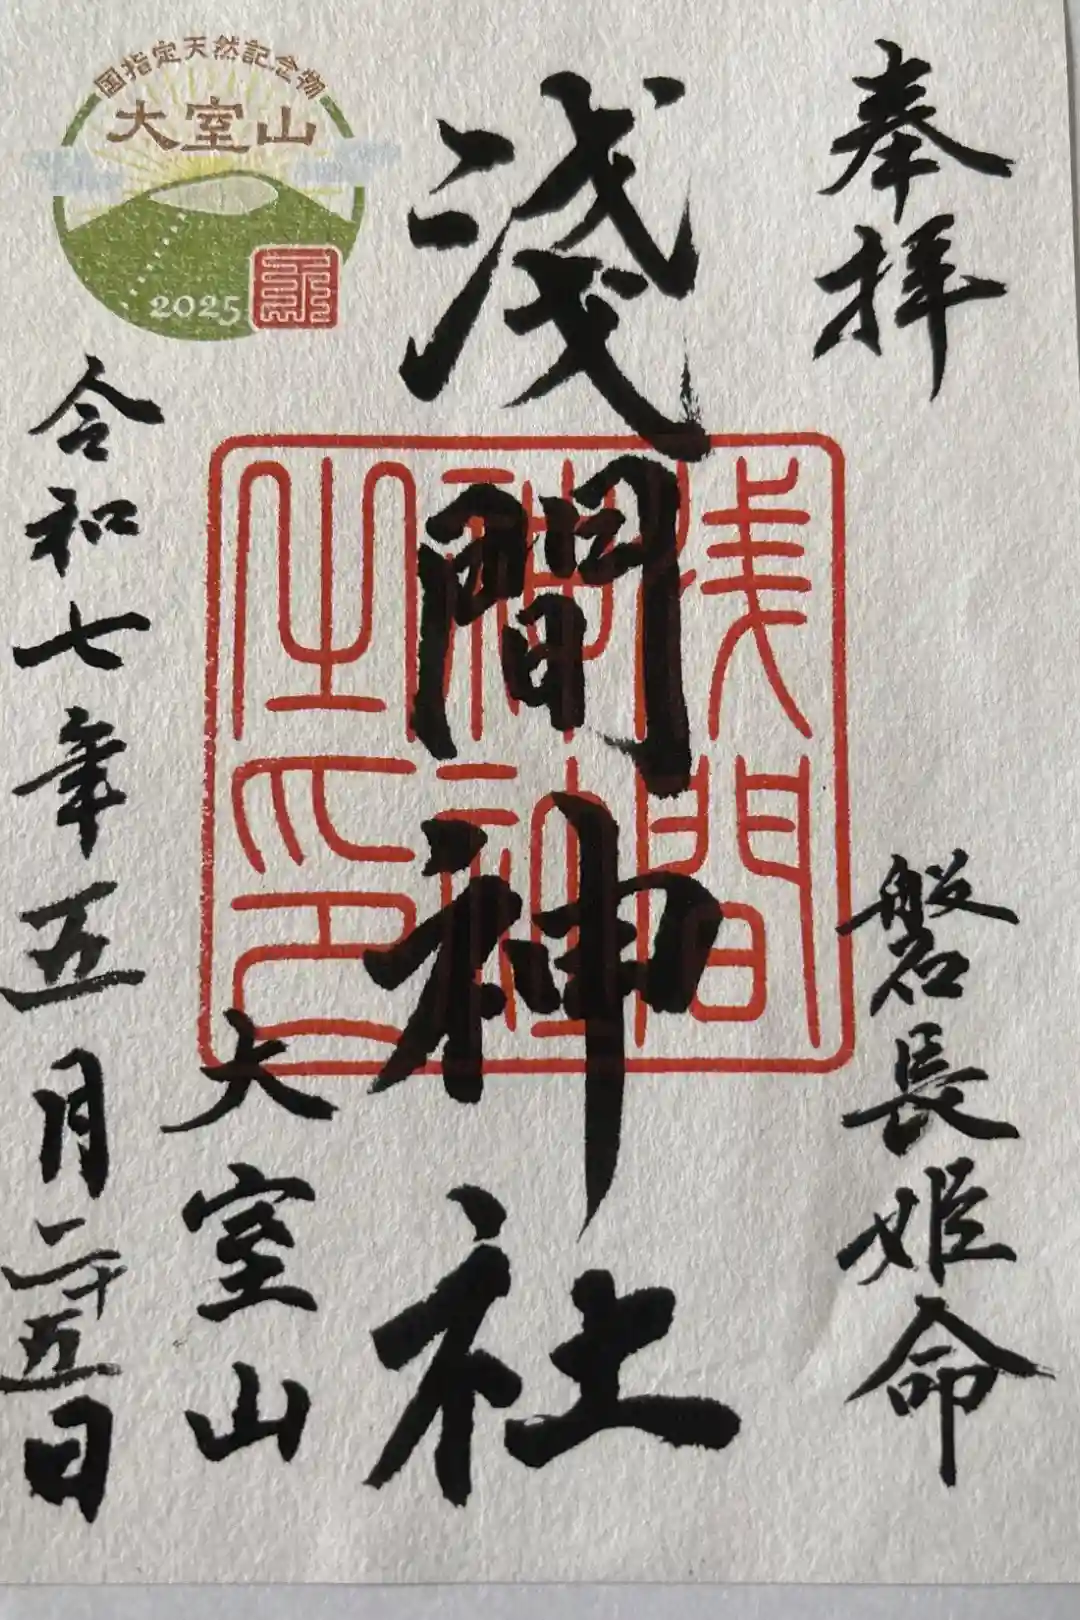 奉拝
磐長姫命
淺間神社
浅間
神社
之印
国指定天然記念物
大室山
2025
大室山
令和七年五月二十五日